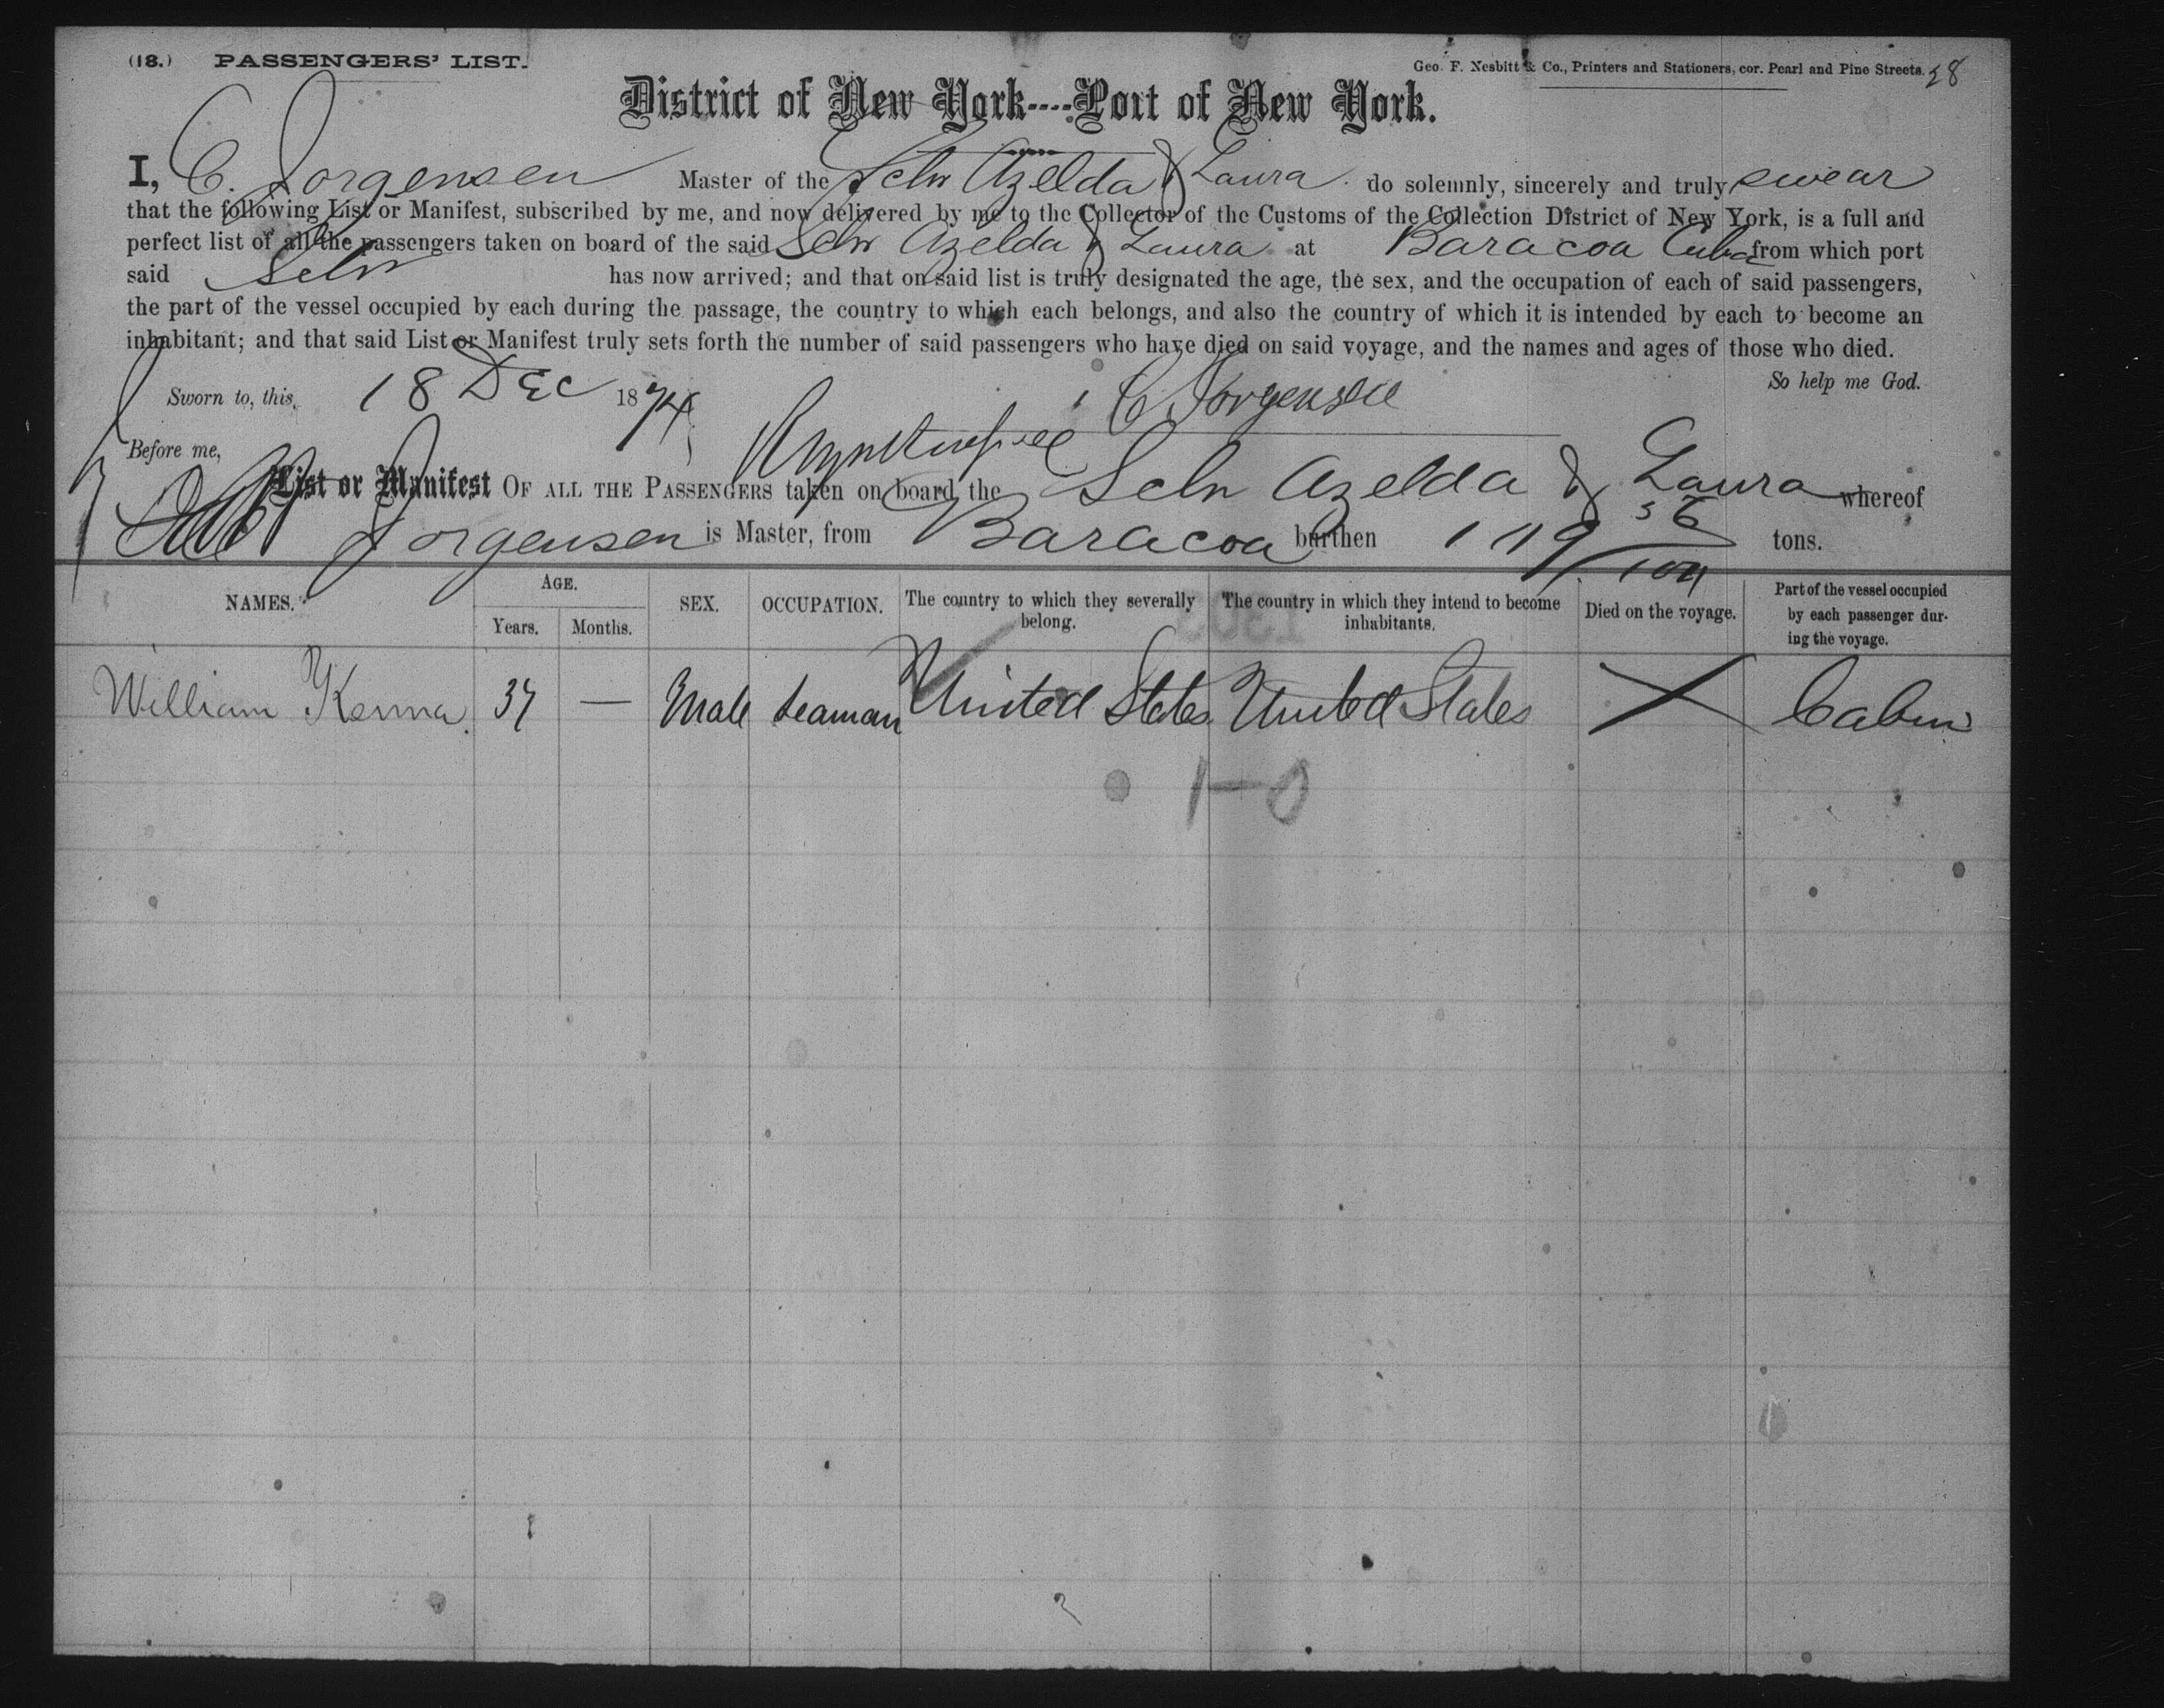 (18.) PASSENGERS' LIST.
Geo. F. Nesbitt & Co., Printers and Stationers, cor. Pearl and Pine Streets. 28
District of New York----Port of New York.
I, C. Jorgensen Master of the Schr Azelda & Laura do solemnly, sincerely and truly swear
that the following List or Manifest, subscribed by me, and now delivered by me to the Collector of the Customs of the Collection District of New York, is a full and
perfect list of all the passengers taken on board of the said Schr Azelda & Laura at Baracoa Cuba from which port
said Schr has now arrived; and that on said list is truly designated the age, the sex, and the occupation of each of said passengers,
the part of the vessel occupied by each during the passage, the country to which each belongs, and also the country of which it is intended by each to become an
inhabitant; and that said List or Manifest truly sets forth the number of said passengers who have died on said voyage, and the names and ages of those who died.
So help me God.
Sworn to, this 18 Dec 1874
C. Jorgensen
Before me,
List or Manifest OF ALL THE PASSENGERS taken on board the Schr Azelda & Laura whereof
Jorgensen is Master, from Baracoa burthen 119 56/100 tons.
NAMES. AGE. Years. Months. SEX. OCCUPATION. The country to which they severally belong. The country in which they intend to become inhabitants. Died on the voyage. Part of the vessel occupied by each passenger during the voyage.
William Kenna 34 — Male Seaman United States United States X Cabin
1-0